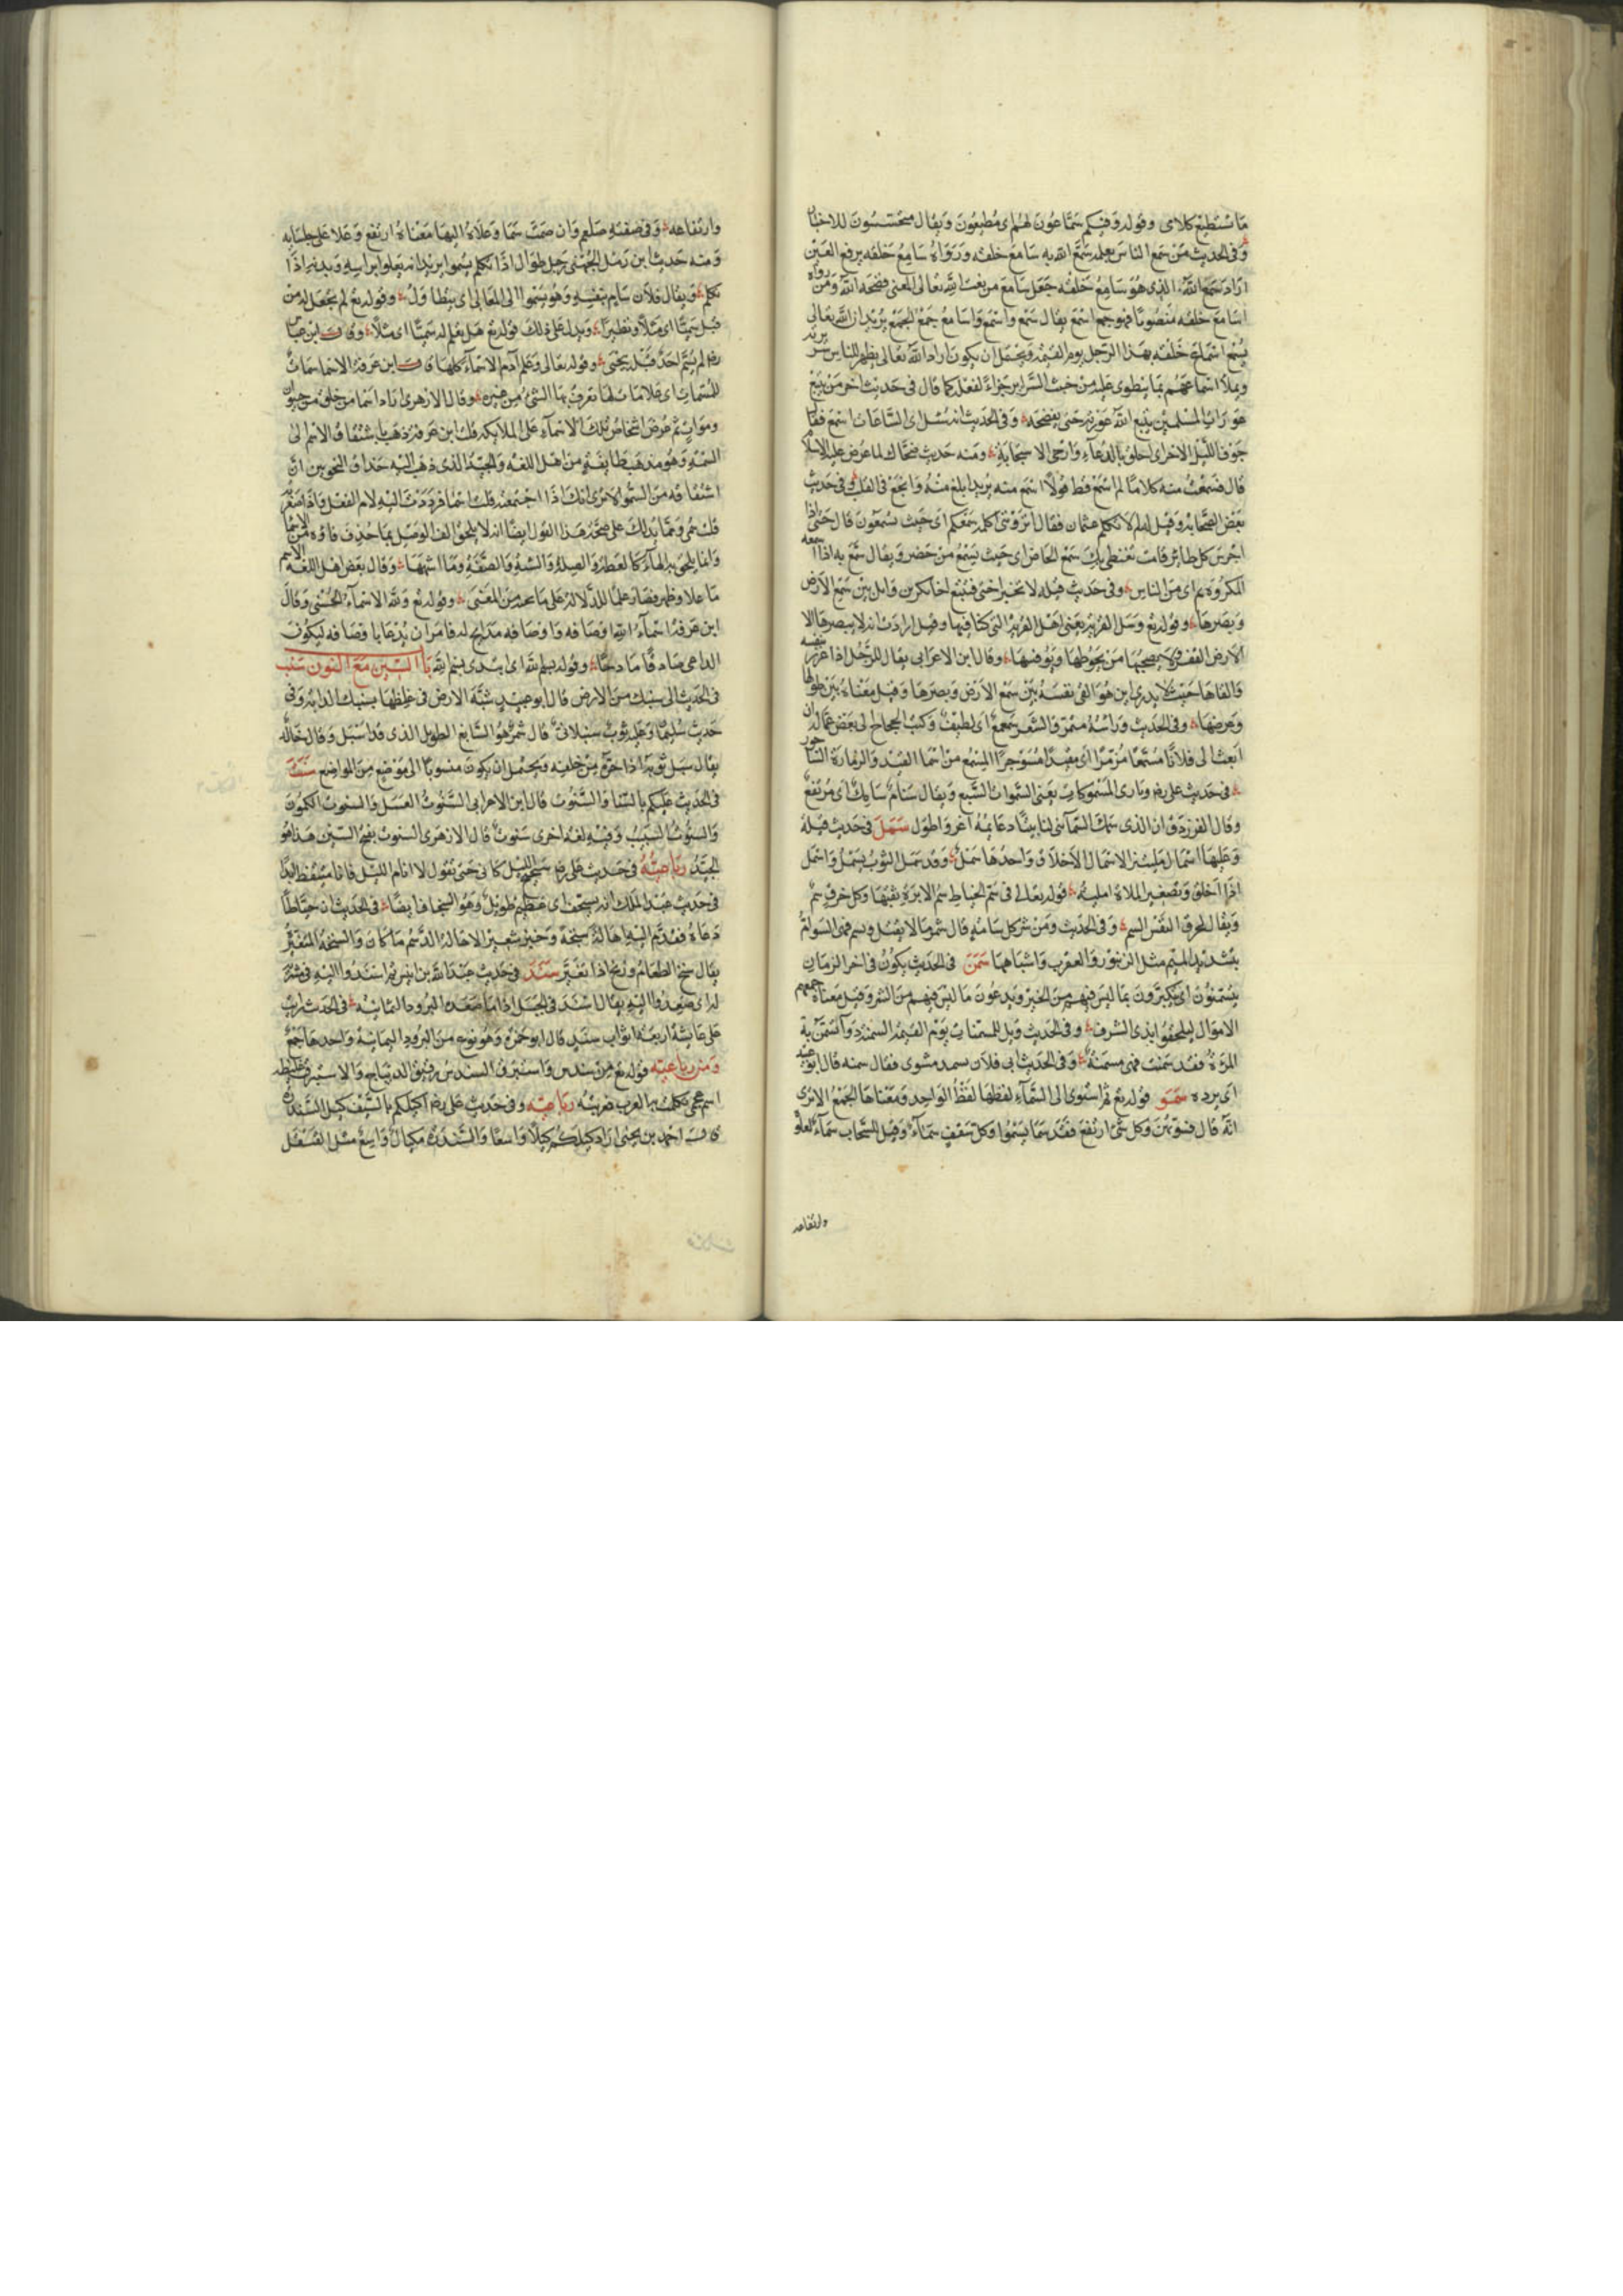 ما تستطيع كلامى وقوله وفيكم سماعون لهم اى مطيعون ويقال متحسسون للاخبار
وفى الحديث من سمع الناس بعلمه سمع الله به سامع خلقه ورواه سامع خلقه برفع العين
اراد سمع الله الذى هو سامع خلقه جعل سامع من نعت الله تعالى المعنى فضحه الله ومن رواه
اسامع خلقه منصوبا فهو جمع اسمع يقال سمع واسمع واسامع جمع الجمع يريد ان الله تعالى
يسمع اسماع خلقه بهذا الرجل يوم القيمة ويحتمل ان يكون اراد الله تعالى يظهر للناس سريرته
ويملأ اسماعهم بما ينطوى عليه من خبث السراير جزاء لفعله كما قال فى حديث اخر من يتبع
عورات المسلمين يتبع الله عورته حتى يفضحه وفى الحديث انه سئل اى الساعات اسمع فقال
جوف الليل الاخر اى اخلق بالدعاء وارجى الاستجابة ومنه حديث ضحاك لما عرض عليه الاسلام
قال فسمعت منه كلاما لم اسمع قط قولا اسمع منه يريد ابلغ منه وانجع فى القلب فى حديث
بعض الصحابة وقيل له لم لا تكلم عثمان فقال اترونى اكلمه سمعكم اى حيث تسمعون قال حتى اذا
اجرس كل طائر قامت تعنظى بك سمع الحاضر اى حيث يسمع من حضر ويقال سمع به اذا اسمعه
المكروه اى من الناس وفى حديث قيلة لا تخبر اختى فتتبع اخا بكر بن وايل بين سمع الارض
وبصرها وقوله تع وسل القرية يعنى اهل القرية التى كنا فيها وقيل ارادت انه لا يبصرها الا
الارض القفر وقال ابن الاعرابى يقال للرجل اذا غرر بنفسه
والقاها حيث لا يدرى اين هو القى نفسه بين سمع الارض وبصرها وقيل معناه بين طولها
وعرضها وفى الحديث وراسه متمرق الشعر سمعمع اى لطيف وكتب الحجاج الى بعض عماله ان
ابعث الى فلانا مسمعا مزمرا اى مقيدا مسوجرا المسمع من اسما القيد والزمارة الساجور
فى حديث على رضه وبارى المسموكات يعنى السموات السبع ويقال سنام سامك اى مرتفع
وقال الفرزدق ان الذى سمك السماء بنى لنا بيتا دعائمه اعز واطول سمل فى حديث قيلة
وعليها اسمال مليتين الاسمال الاخلاق واحدها سمل وقد سمل الثوب يسمل واسمل
اذا اخلق وتصغير الملاة املية قوله تعالى فى سم الخياط سم الابرة ثقبها وكل خرق سم
ويقال لخرق النفس السم وفى الحديث ومن شر كل سامة قال شمر ما لا يقتل ويسم فهى السوام
بتشديد الميم مثل الزنبور والعقرب واشباهها سمن فى الحديث يكون فى اخر الزمان
يتسمنون اى يتكثرون بما ليس فيهم من الخير ويدعون ما ليس فيهم من الشرف وقيل معناه جمعهم
الاموال ليلحقوا بذوى الشرف وفى الحديث ويل للمسمنات يوم القيمة السمنة دواء تسمن به
المرأة فقد سمنت فهى مسمنة وفى الحديث اتى فلان بسمكة مشوى فقال سمنه قال ابو عبيد
اى برده سمو قوله تع ثم استوى الى السماء لفظها لفظ الواحد ومعناها الجمع الا ترى
انه قال فسويهن وكل شئ ارتفع فقد سما يسموا وكل سقف سماء وقيل للسحاب سماء لعلو
وارتفاعه
وارتفاعه وفى صفته صلعم وان صمت سما وعلاه البها معناه ارتفع وعلا على جلسايه
ومنه حديث ابن زمل الجهنى رجل طوال اذا تكلم يسموا يريد انه يعلوا براسه ويديه اذا
تكلم ويقال فلان سام بنفسه وهو يسموا الى المعالى اى يتطاول وقوله تع لم نجعل له من
قبل سميا اى مثلا ونظيرا ويدل على ذلك قوله تع هل تعلم له سميا اى مثلا وقال ابن عباس
رضه لم يسم احد قبله بيحيى وقوله تعالى وعلم آدم الاسماء كلها قال ابن عرفة الاسما سمات
للمسميات اى علامات لها تعرف بها الشئ من غيره وقال الازهرى اراد اسما من خلق من حيوان
وموات ثم عرض اشخاص تلك الاسماء على الملائكة قلت ابن عرفة ذهب باشتقاق الاسم الى
السمة وهو مذهب طايفة من اهل اللغة والجيد الذى ذهب اليه حذاق النحويين ان
اشتقاقه من السمو الا ترى انك اذا اجتمعته قلت اسما فرددت اليه لام الفعل واذا صغرته
قلت سمى ومما يدلك على صحة هذا القول ايضا انه لا يلحق الف الوصل بما حذف فاوه من الاسما
وانما يلحق به الهاء كالعظة والصلة والسنة والصفة وما اشبهها وقال بعض اهل اللغة الاسم
ما علا وظهر فصار علما للدلالة على ما تحته من المعنى وقوله تع ولله الاسماء الحسنى وقال
ابن عرفة اسماء الله اوصافه واوصافه مدايح له فامر ان يدعا باوصافه ليكون
الداعى صادقا مادحا وقوله بسم لله اى ابتدى بسم لله باب السين مع النون سنب
فى الحديث الى سنبك من الارض قال ابو عبيد شبه الارض فى غلظها بسنبك الدابة وفى
حديث سليمان وعليه ثوب سنبلانى قال شمر هو السابغ الطويل الذى قد اسبل وقال خالد
يقال سبل ثوبه اذا جره من خلفه ويحتمل ان يكون منسوبا الى موضع من المواضع سنت
فى الحديث عليكم بالسنا والسنوت قال ابن الاعرابى السنوت العسل والسنوت الكمون
والسنوت الشبت وفيه لغة اخرى سنوت قال الازهرى السنوت بفتح السين هذا هو
الجيد رباعيته فى حديث على رضه سنحنح الليل كانى جنى تقول لا انام الليل فانا مستيقظ ابدا
فى حديث عبد الملك انه لسنخف اى عظيم طويل وهو السنخاف ايضا فى الحديث ان خياطا
دعاه فقدم اليه اهالة سنخة وخبز شعير الاهالة الدسم ما كان والسنخة المتغير
يقال سنخ الطعام وزنخ اذا تغير سند فى حديث عبد الله بن انيس ثم اسندوا اليه فى مشربة
له اى صعدوا اليه يقال اسند فى الجبل اذا ما صعده البرود اليمانية فى الحديث رايت
على عايشة اربعة اثواب سند قال ابو حمزة وهو نوع من البرود اليمانية واحدها الجمع
ومن رباعيته قوله تع من سندس واستبرق السندس رقيق الديباج والاستبرق غليظه
اسم عجمى تكلمت به العرب فعربته رباعيته وفى حديث على رضه اكيلكم بالسيف كيل السندرة
قال احمد بن يحيى اراد كيلكم كيلا واسعا والسندرة مكيال واسع مثل القنقل